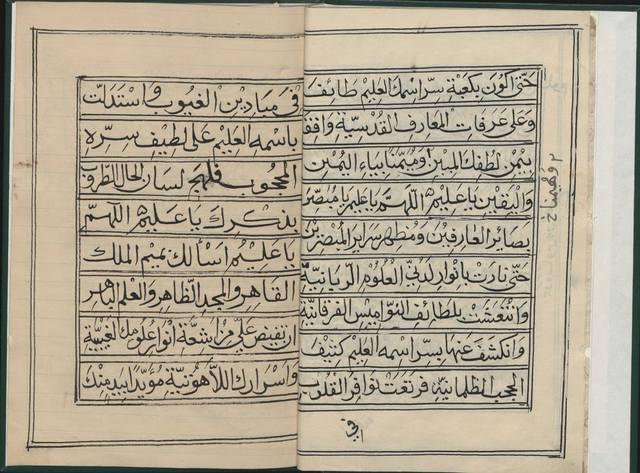 حتى اكون بكعبة سر اسمك العليم طائفا
وعلى عرفات المعارف القدسية واقفا
بيمن لطفك المبين ومتيمنا بياء اليمن
واليقين يا عليم اللهم يا عليم يا مبصر
بصائر العارفين ومطهر سراير المبصرين
حتى نارت بانوار لدني العلوم الربانية
وانتعشت بلطائف النواميس الفرقانية
وانكشف عنها بسر اسمه العليم كثيف
الحجب الظلمانية فرتعت نوافر القلوب
في
في ميادين الغيوب واستدلت
باسمه العليم على لطيف سره
المحجوب فلهج لسان الحال الطروب
بذكرك يا عليم اللهم
يا عليم اسألك بميم الملك
القاهر والمجد الظاهر والعلم الباهر
ان تفيض علي من اشعة انوار علومك الغيبية
واسرارك اللاهوتية مؤيدا بيد منك